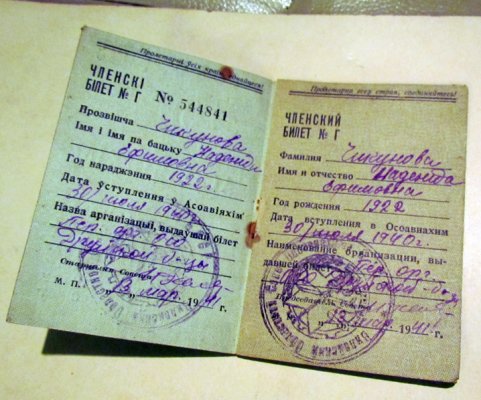 Пролетарыі ўсіх краін, еднайцеся!
ЧЛЕНСКІ
БІЛЕТ № Г № 544841
Прозвішча Чикунова
Імя і імя па бацьку Надежда
Ефимовна
Год нараджэння 1922 г.
Дата ўступлення ў Асоавіяхім
30 июля 1940 г.
Назва арганізацыі, выдаўшай білет
Пер. орг.
Старшыня Савета
М. П. 13 мар. 1941 г.
Пролетарии всех стран, соединяйтесь!
ЧЛЕНСКИЙ
БИЛЕТ № Г
Фамилия Чикунова
Имя и отчество Надежда
Ефимовна
Год рождения 1922
Дата вступления в Осоавиахим
30 июля 1940 г.
Наименование организации, вы-
давшей билет Пер. орг.
Председатель Совета
13 мар. 1941 г.